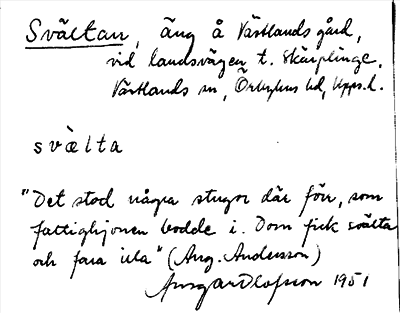 Svältan, äng å Västlands gård,
vid landsvägen t. Skärplinge,
Västlands sn, Örbyhus hd, Upps. l.
svälta
"Det stod några stugor där förr, som
fattighjonen bodde i. Dom fick svälta
och fara illa" (Aug. Andersson)
Ansgar Olofsson 1951